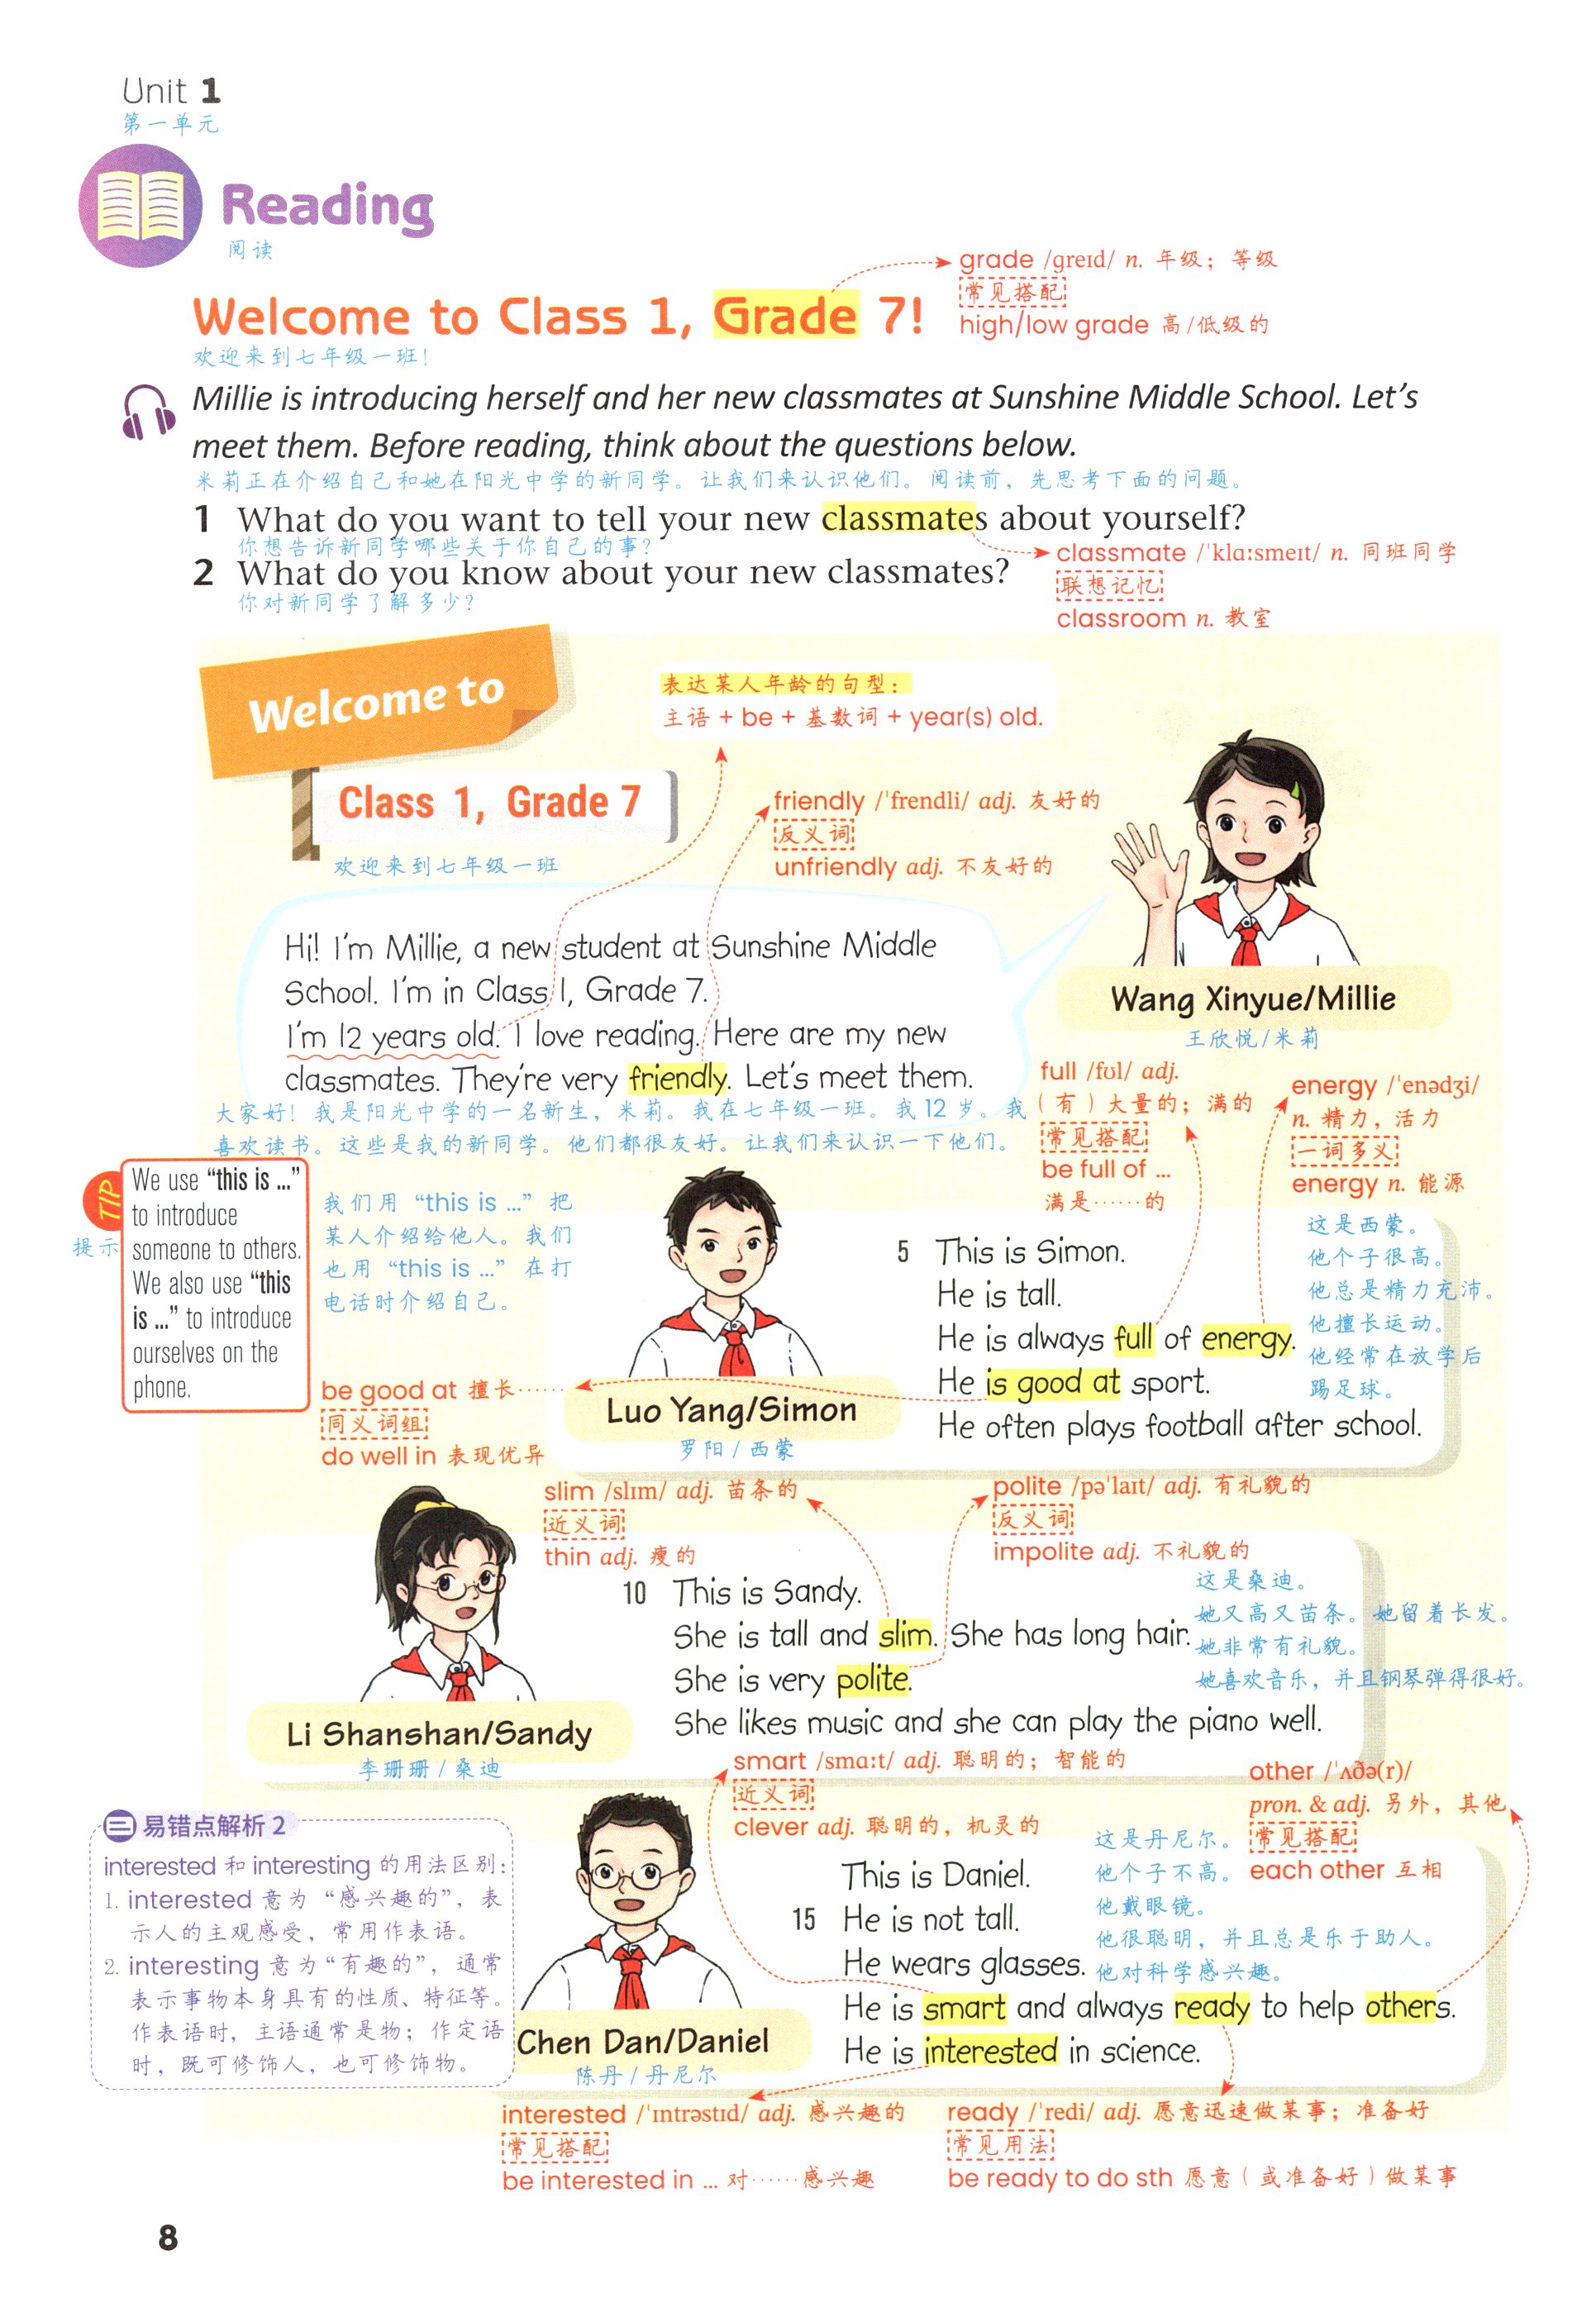 Unit 1
第一单元
Reading
阅读
grade /ɡreɪd/ n. 年级；等级
常见搭配
high/low grade 高/低级的
Welcome to Class 1, Grade 7!
欢迎来到七年级一班！
Millie is introducing herself and her new classmates at Sunshine Middle School. Let's
meet them. Before reading, think about the questions below.
米莉正在介绍自己和她在阳光中学的新同学。让我们来认识他们。阅读前，先思考下面的问题。
1 What do you want to tell your new classmates about yourself?
你想告诉新同学哪些关于你自己的事？
classmate /ˈklɑːsmeɪt/ n. 同班同学
联想记忆
classroom n. 教室
2 What do you know about your new classmates?
你对新同学了解多少？
Welcome to
Class 1, Grade 7
欢迎来到七年级一班
表达某人年龄的句型：
主语 + be + 基数词 + year(s) old.
friendly /ˈfrendli/ adj. 友好的
反义词
unfriendly adj. 不友好的
Hi! I'm Millie, a new student at Sunshine Middle
School. I'm in Class 1, Grade 7.
I'm 12 years old. I love reading. Here are my new
classmates. They're very friendly. Let's meet them.
大家好！我是阳光中学的一名新生，米莉。我在七年级一班。我12岁。我
喜欢读书。这些是我的新同学。他们都很友好。让我们来认识一下他们。
Wang Xinyue/Millie
王欣悦/米莉
full /fʊl/ adj.
（有）大量的；满的
常见搭配
be full of ...
满是……的
energy /ˈenədʒi/
n. 精力，活力
一词多义
energy n. 能源
TIP
提示
We use "this is ..."
to introduce
someone to others.
We also use "this
is ..." to introduce
ourselves on the
phone.
我们用“this is ...”把
某人介绍给他人。我们
也用“this is ...”在打
电话时介绍自己。
be good at 擅长……
同义词组
do well in 表现优异
Luo Yang/Simon
罗阳/西蒙
5 This is Simon.
He is tall.
He is always full of energy.
He is good at sport.
He often plays football after school.
这是西蒙。
他个子很高。
他总是精力充沛。
他擅长运动。
他经常在放学后
踢足球。
slim /slɪm/ adj. 苗条的
近义词
thin adj. 瘦的
polite /pəˈlaɪt/ adj. 有礼貌的
反义词
impolite adj. 不礼貌的
Li Shanshan/Sandy
李珊珊/桑迪
10 This is Sandy.
She is tall and slim. She has long hair.
She is very polite.
She likes music and she can play the piano well.
这是桑迪。
她又高又苗条。她留着长发。
她非常有礼貌。
她喜欢音乐，并且钢琴弹得很好。
smart /smɑːt/ adj. 聪明的；智能的
近义词
clever adj. 聪明的，机灵的
other /ˈʌðə(r)/
pron. & adj. 另外，其他
常见搭配
each other 互相
易错点解析 2
interested 和 interesting 的用法区别：
1. interested 意为“感兴趣的”，表
示人的主观感受，常用作表语。
2. interesting 意为“有趣的”，通常
表示事物本身具有的性质、特征等。
作表语时，主语通常是物；作定语
时，既可修饰人，也可修饰物。
Chen Dan/Daniel
陈丹/丹尼尔
This is Daniel.
15 He is not tall.
He wears glasses.
He is smart and always ready to help others.
He is interested in science.
这是丹尼尔。
他个子不高。
他戴眼镜。
他很聪明，并且总是乐于助人。
他对科学感兴趣。
interested /ˈɪntrəstɪd/ adj. 感兴趣的
常见搭配
be interested in ... 对……感兴趣
ready /ˈredi/ adj. 愿意迅速做某事；准备好
常见用法
be ready to do sth 愿意（或准备好）做某事
8